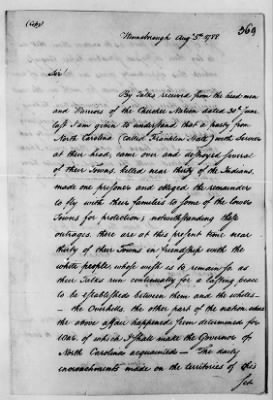 (Copy)
569
Winnsborough Augt. 5th 1788
Sir!
By Talks received from the head-men
and Warriors of the Cherokee Nation dated 30th June
last I am given to understand that a party from
North Carolina (called Franklin State) with Servier
at their head, came over and destroyed several
of their Towns, killed near thirty of the Indians,
made one prisoner and obliged the remainder
to fly with their families to some of the lower
Towns for protection; notwithstanding these
outrages, there are at this present time near
thirty of their Towns in friendship with the
white people, whose wish is to remain so, as
their Talks run continually for a lasting peace
to be established between them and the whites
— the Overhills, the other part of the nation where
the above affair happened, seem determined for
War, of which I shall make the Governor of
North Carolina acquainted — The daily
encroachments made on the territories of this